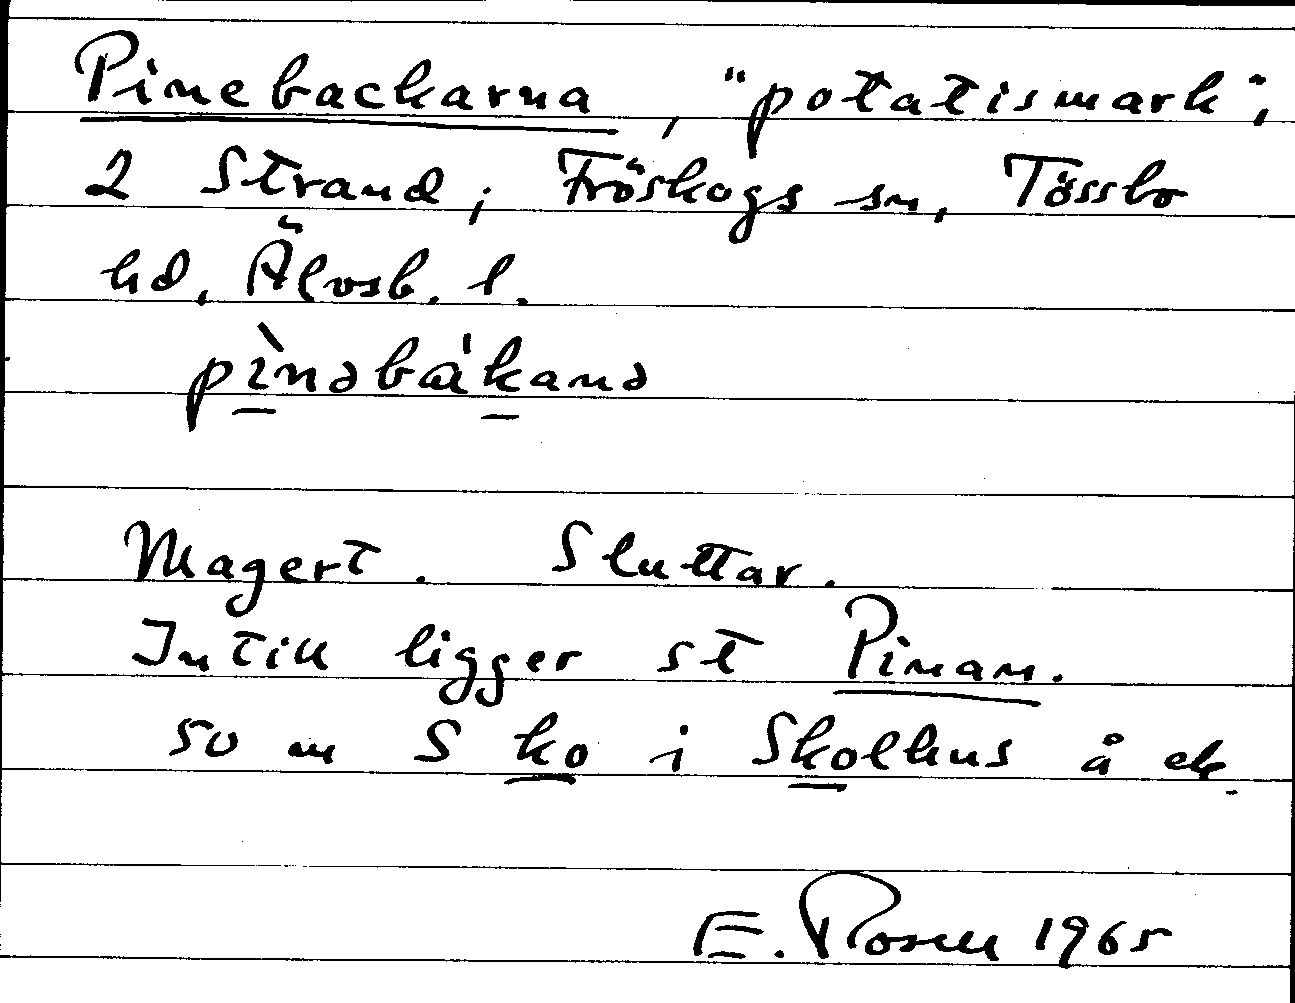 Pinebackarna, "potatismark",
2 Strand, Fröskogs sn, Tössbo
hd, Älvsb. l.
pìnəbàkanə
Magert. Sluttar.
Intill ligger st Pinan.
50 m S ko i Skolhus å ek.
E. Rosell 1965